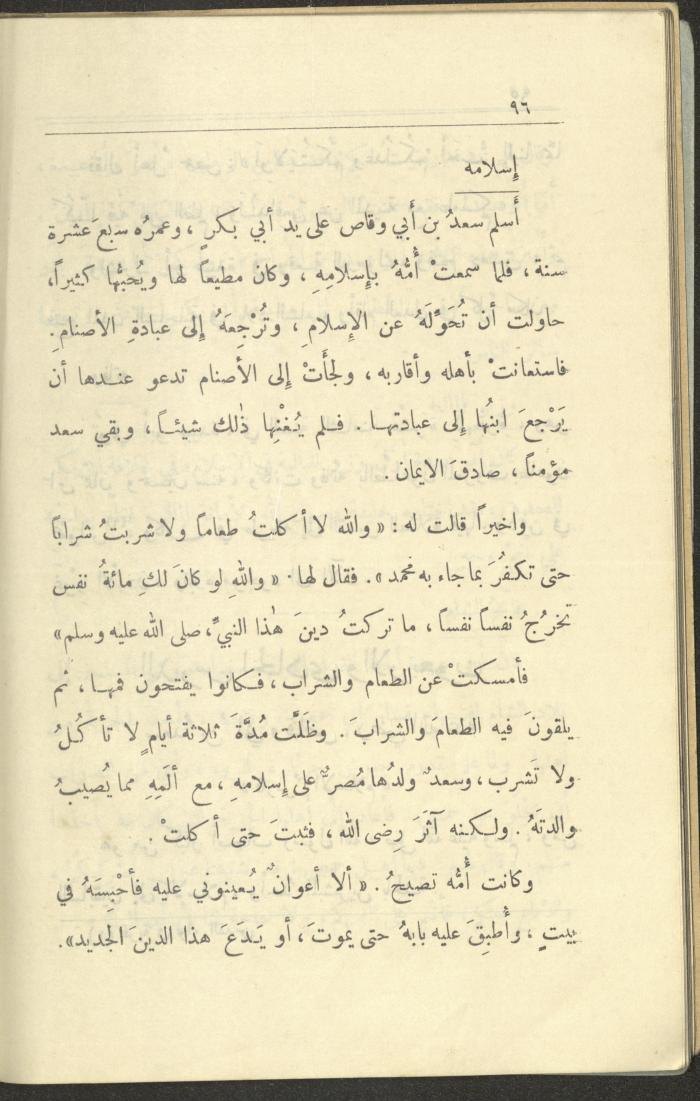 ٩٦
إسلامه
أَسلم سعدُ بن أَبي وقاص على يد أبي بكرٍ ، وعمرُه سبعَ عشرة
سنة ، فلما سمعتْ أُمُّهُ بإِسلامِهِ ، وكان مطيعاً لها ويُحبُّها كثيراً،
حاولت أن تُحَوِّلَهُ عن الإِسلامِ ، وتُرْجِعَهُ إلى عبادةِ الأصنامِ.
فاستعانتْ بأهله وأقاربه ، ولجأَتْ إلى الأصنام تدعو عندها أن
يَرْجعَ ابنُها إلى عبادتها . فلم يُغْنِها ذٰلك شيئاً ، وبقي سعد
مؤمناً ، صادقَ الايمان .
واخيراً قالت له : « والله لا أكلتُ طعاماً ولا شربتُ شراباً
حتى تكفُرَ بما جاء به محمد » . فقال لها · « واللهِ لو كانَ لكِ مائةُ نفس
تخرُجُ نفساً نفساً ، ما تركتُ دينَ هٰذا النبيِّ، صلى الله عليه وسلم»
فأمسكتْ عن الطعام والشراب ، فكانوا يفتحون فمها ، ثم
يلقونَ فيه الطعامَ والشرابَ . وظَلَّت مُدَّةَ ثلاثة أيامٍ لا تأكُلُ
ولا تَشرب ، وسعدٌ ولدُها مُصرٌّ على إِسلامهِ ، مع أَلَمِهِ مما يُصيبُ
والدتَهُ . ولكنه آثَرَ رِضى الله ، فثبتَ حتى أكلتْ .
وكانت أُمُّه تصيحُ . « ألا أعوانٌ يُعينوني عليه فأحْبِسَهُ في
بيتٍ ، وأُطبِقَ عليه بابهُ حتى يموتَ ، أو يَدَعَ هذا الدينَ الجديد».